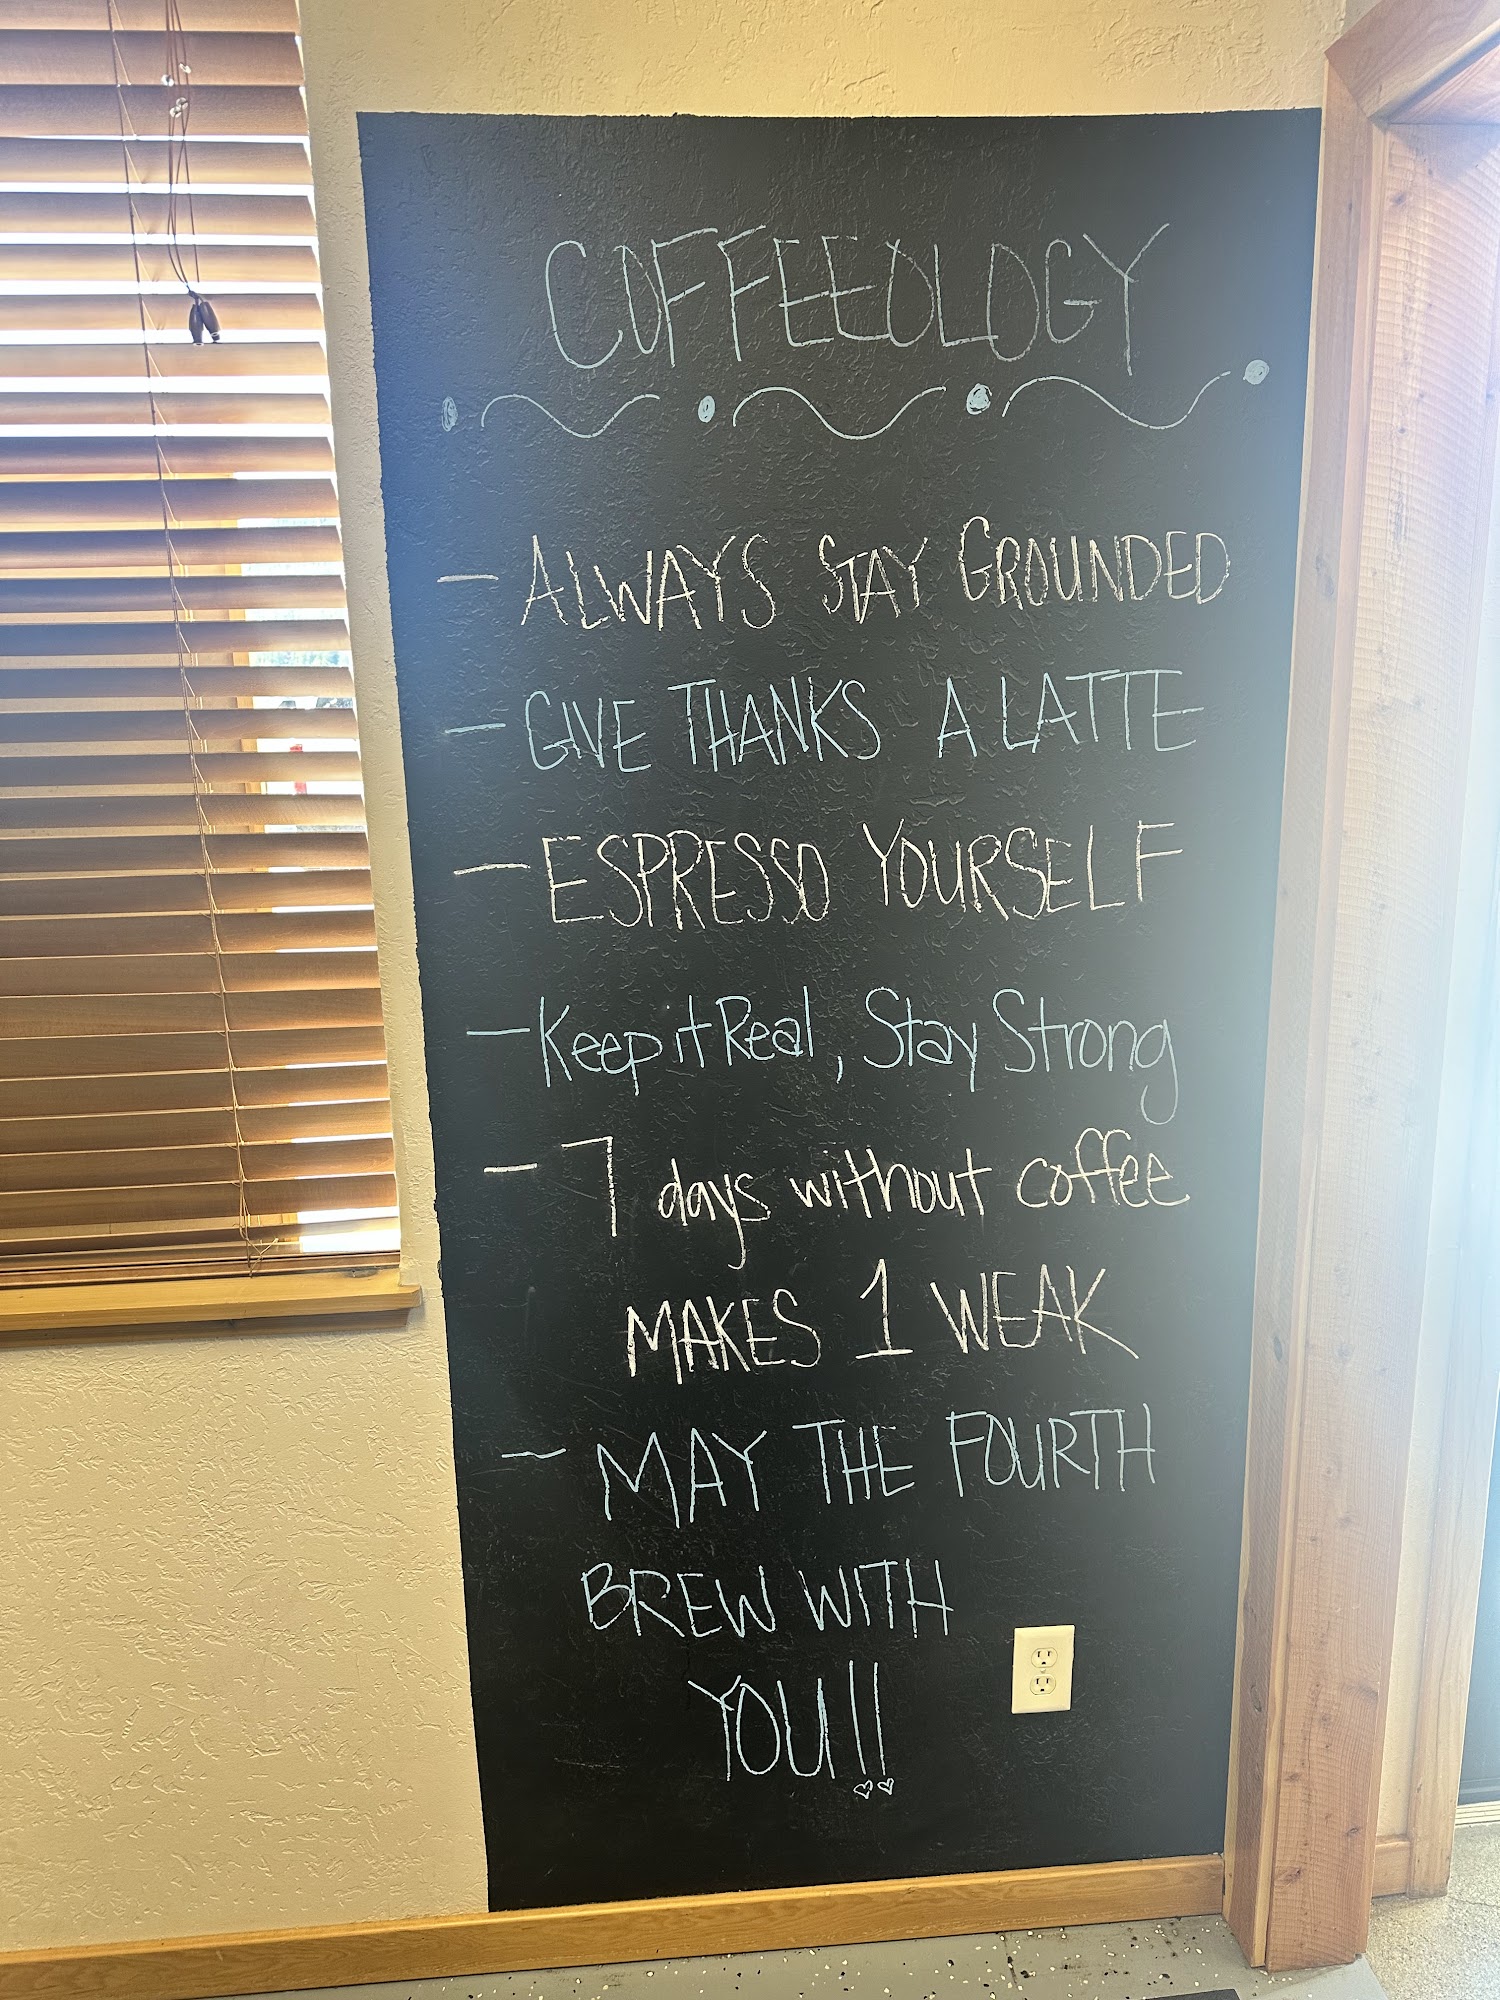 COFFEEOLOGY
- ALWAYS STAY GROUNDED
- GIVE THANKS A LATTE
- ESPRESSO YOURSELF
- Keep it Real, Stay Strong
- 7 days without coffee
MAKES 1 WEAK
- MAY THE FOURTH
BREW WITH
YOU!!